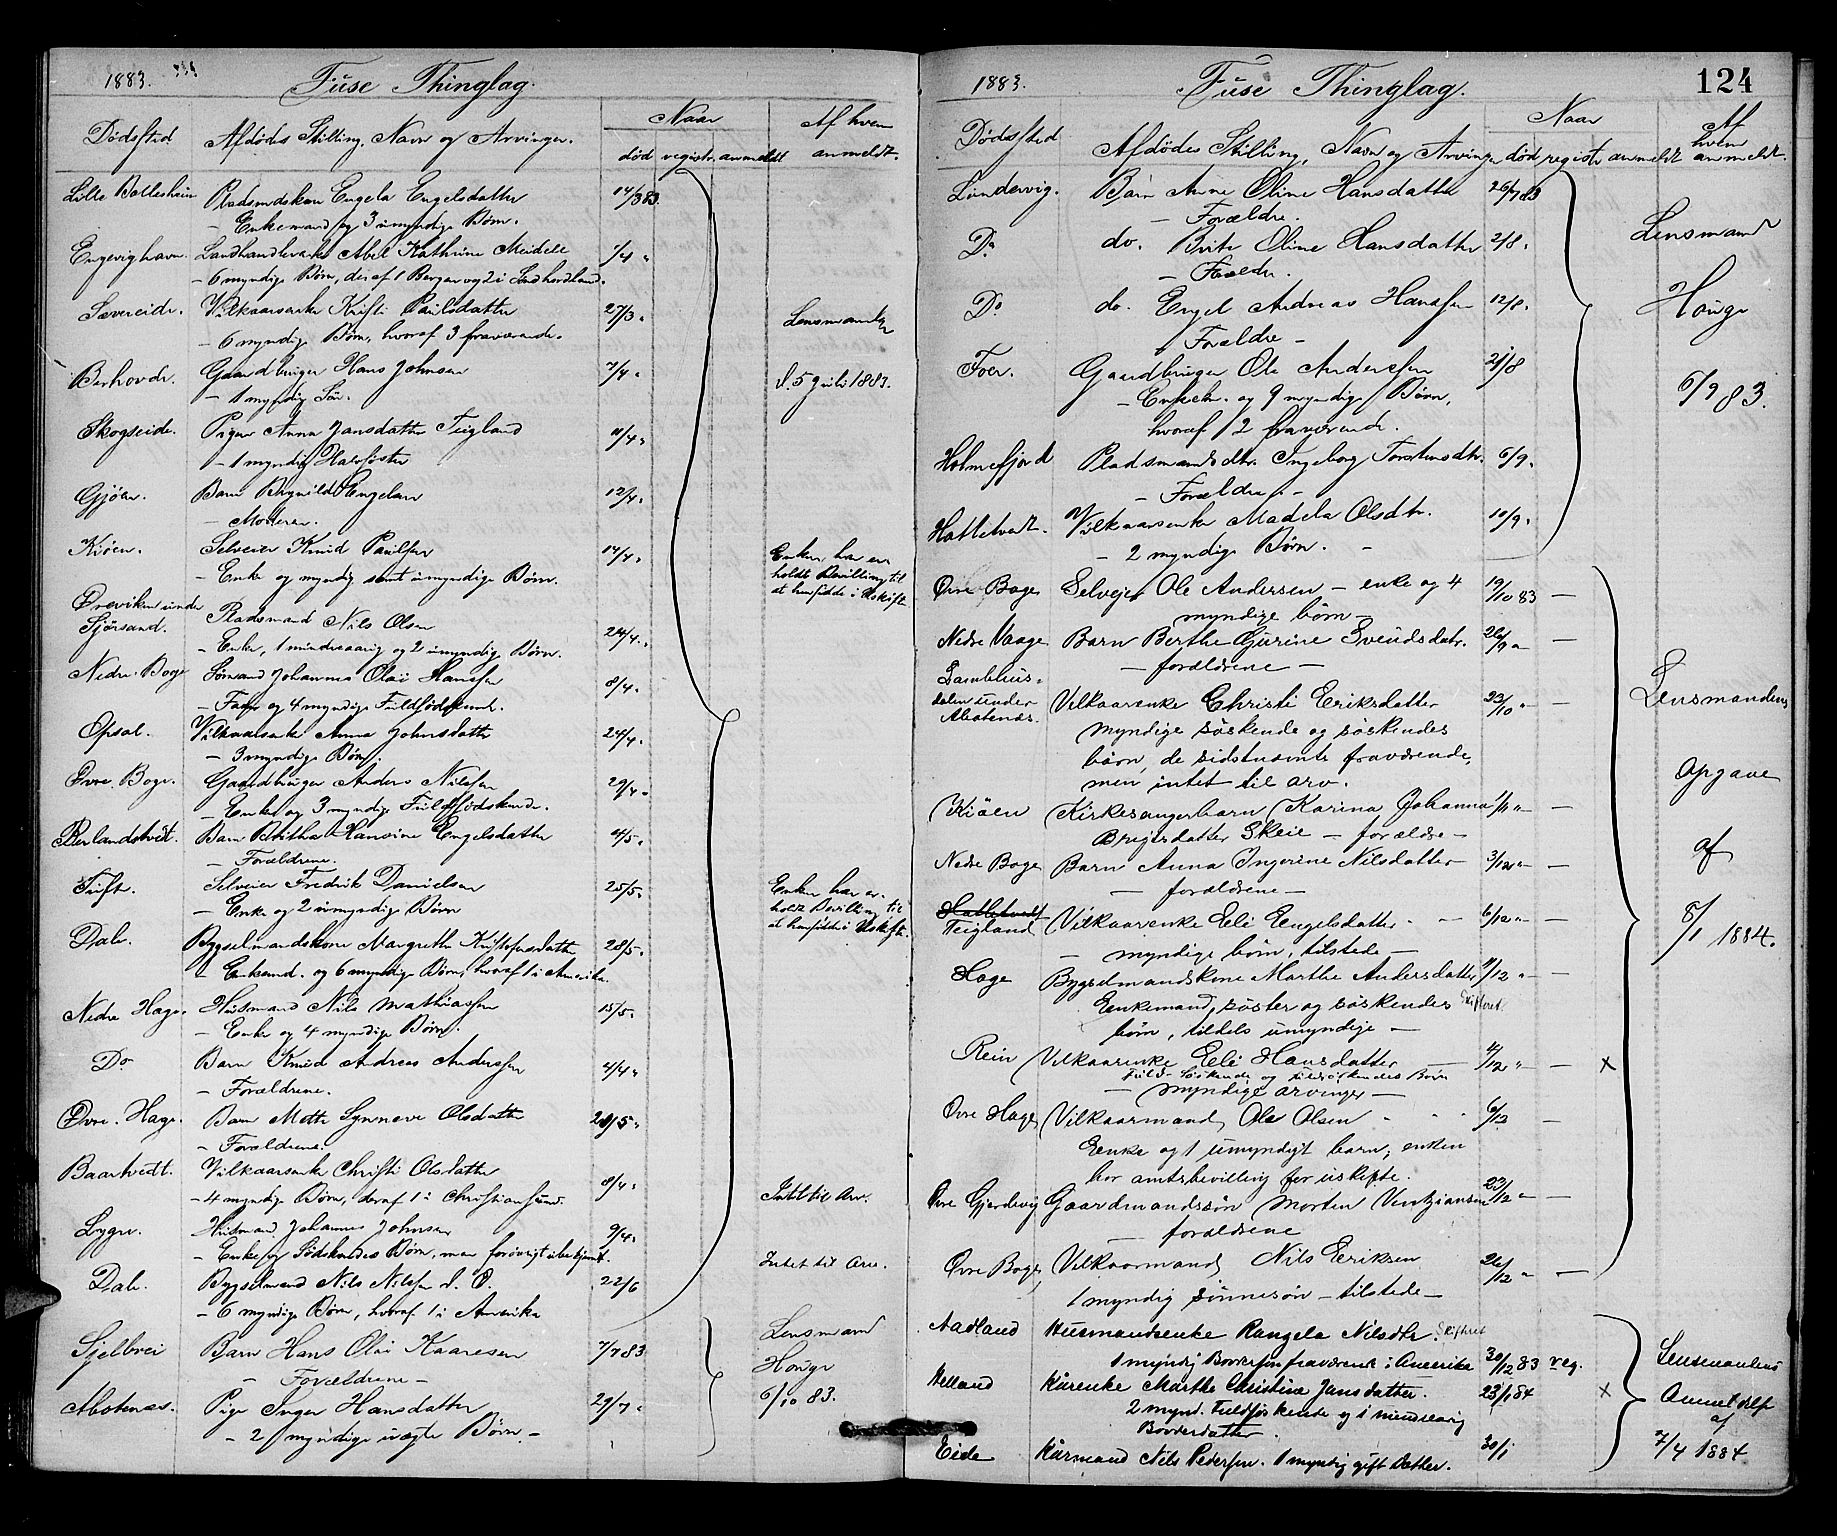 1883.
Fuse Thinglag.
Dødssted
Afdødes Stilling, Navn og Arvinger.
Naar
død registr. anmeldt
Af hvem
anmeldt.
Lille Bolleshein Pladsmdskone Engela Engelsdatter 14/3 83.
- Enkemand og 3 umyndige Børn.
Engevighavn. Landhandlerenke Abel Kathrine Meidell 7/4 "
- 6 myndige Børn, deraf 1 Bergen og 2 i Søndhordland.
Sævereide. Vilkaarsenke Kristi Paulsdatter 27/3 "
- 6 myndige Børn, hvoraf 3 fraværende.
Lensmanden
Berhovde. Gaardbruger Hans Johnsen 7/4 "
- 1 myndig Søn.
d. 5 Juli 1883.
Skogseide. Pigen Anna Jansdatter Teigland 11/4 "
- 1 myndig Halvsøster
Gjøen. Barn Brynild Engelsen 12/4 "
- Moderen.
Kiøen. Selveier Knud Paulsen 14/4 "
- Enke og myndig samt umyndige Børn.
Enken har er
holdt Bevilling til
at hensidde i Uskifte
Øreviken under
Sjørsand. Pladsmand Nils Olsen 24/4 "
- Enke, 1 mindreaarig og 2 umyndige Børn.
Nedre Boge Sømand Johannes Olai Hansen 8/4 "
- Fader og 4 myndige Fuldsødskende.
Opsal. Vilkaarsenke Anna Johnsdatter 24/4 "
- 3 myndige Børn.
Øvre Boge. Gaardbruger Anders Nilsen 29/4 "
- Enke og 3 myndige Fuldsødskende.
Berlandstvedt. Barn Brithe Hansine Engelsdatter 4/5 "
- Forældrene.
Tuft. Selveier Fredrik Danielsen 25/5 "
- Enke og 2 umyndige Børn
Enken har er-
holdt Bevilling til
at hensidde i Uskifte.
Dale. Bygselmandskone Margrethe Kristofersdatter 28/5 "
- Enkemd. og 6 myndige Børn, hvoraf 1 i Amerika.
Nedre Hage. Husmand Nils Mathiassen 15/5 "
- Enke og 4 myndige Børn.
Do Barn Knud Andreas Anderssen 4/4 "
- Forældrene.
Øvre Hage. Barn Mette Synneve Olsdatter 28/5 "
- Forældrene.
Baartvedt. Vilkaarsenke Christi Olsdatter 8/4 "
- 4 myndige Børn, deraf 1 i Christiansund.
Intet til Arv.
Lygre. Husmand Johannes Johnsen 9/4 "
- Enke og Sødskendes Børn, men forøvrigt ubekjendt.
Intet til Arv.
Dale. Bygselmand Nils Nilsen d. O. 22/6
- 6 myndige Børn, hvoraf 1 i Amerika
Sjelbrei Barn Hans Olai Kaaresen 7/7 83
- Forældrene -
Lensmand
Houge
6/10 83.
Abotnæs. Pige Inger Hansdatter 29/7 "
- 2 myndige uægte Børn -
1883.
Fuse Thinglag.
124
Dødssted
Afdødes Stilling, Navn og Arvinger
Naar
død registr anmeldt
Af
hvem
anmeldt.
Lundervig. Barn Anne Oline Hansdatter 26/7 83
- Forældre.
Lensmand
Do do. Brite Oline Hansdatter 2/8 "
- Forældre.
Do do. Engel Andreas Hansen 12/8 "
Forældre -
Houge
Foer. Gaardbruger Ole Andersen 21/8
- Enken og 9 myndige Børn,
hvoraf 2 fraværende.
6/9 83.
Holmefjord Pladsmandsdtr. Ingeborg Torstensdtr. 6/9 "
- Forældre. -
Hatletvedt. Vilkaarsenke Madela Olsdtr. 10/9 "
- 2 myndige Børn. -
Øvre Boge Selvejer Ole Andersen - enke og 4 19/10 83 -
myndige børn -
Nedre Vaage Barn Berthe Gurine Sveindsdatr. 26/9 " -
- forældrene -
Lambhus-
dalen under
Abotnæs. Vilkaarenke Christi Eriksdatter 23/10 " -
myndige søskende og søskendes
børn, de sidstnævnte fraværende,
men intet til arv.
Lensmandens
opgave
af
8/1 1884.
Kiöen Kirkesangerbarn Karina Johanna 1/11 " -
Brigtsdatter Skeie - forældre -
Nedre Boge Barn Anna Ingerine Nilsdatter 3/12 " -
- forældrene -
Hatletvedt
Teigland Vilkaarenke Eli Engelsdatter - 6/12 " -
- myndige børn, tilstede -
Hage Bygselmandskone Marthe Andersdatter 11/12 " -
Enkemand, søster og søskendes Skiftet
børn, tildels umyndige -
Rein Vilkaarenke Eli Hansdatter 4/12 " - x
Fuld-Søskende og Fuldsøskendes Børn
- myndige arvinger -
Øvre Hage Vilkaarmand Ole Olsen - 6/12 -
Enke og 1 umyndigt barn, enken
har amtsbevilling for uskifte.
Øvre Gjerdevig Gaardmandssøn Morten Vintziansen 23/12 " -
- forældrene
Øvre Boge Vilkaarmand Nils Eriksen 26/12 " -
1 myndig sønnesøn - tilstede -
Aadland Husmandsenke Rangela Nilsdtr. Skiftet
1 myndig Brodersøn fraværende i Amerika 30/12 83 reg.
Lensmandens
Anmeldelse
af
7/4 1884
Helland Kårenke Marthe Christine Jansdatter. 23/1 84 x
2 mynd. Fuldsøskende og 1 mindreaarig
Broderdatter.
Eide Kårmand Nils Pedersen. 1 myndig gift Datter. 30/1